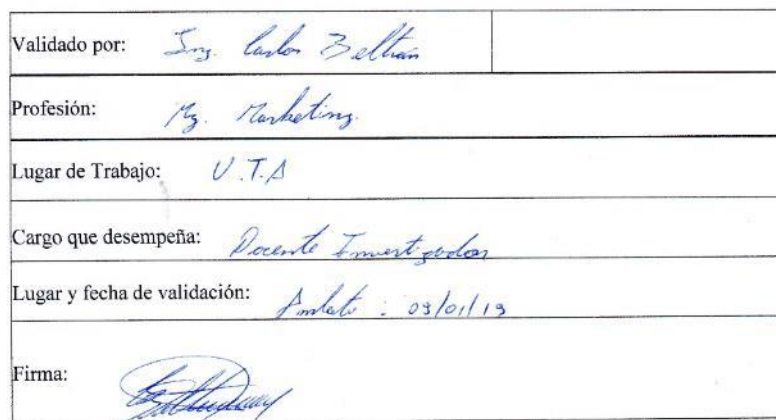 Validado por: Ing. Carlos Beltrán
Profesión: Mg. Marketing.
Lugar de Trabajo: U.T.A
Cargo que desempeña: Docente Investigador
Lugar y fecha de validación: Ambato : 09/01/19
Firma: